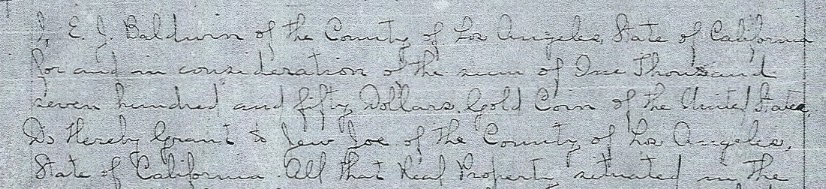 I, E. J. Baldwin of the County of Los Angeles, State of California
for and in consideration of the sum of One Thousand
seven hundred and fifty Dollars, Gold Coin of the United States,
Do Hereby Grant to Jew Joe of the County of Los Angeles,
State of California All that Real Property situated in the